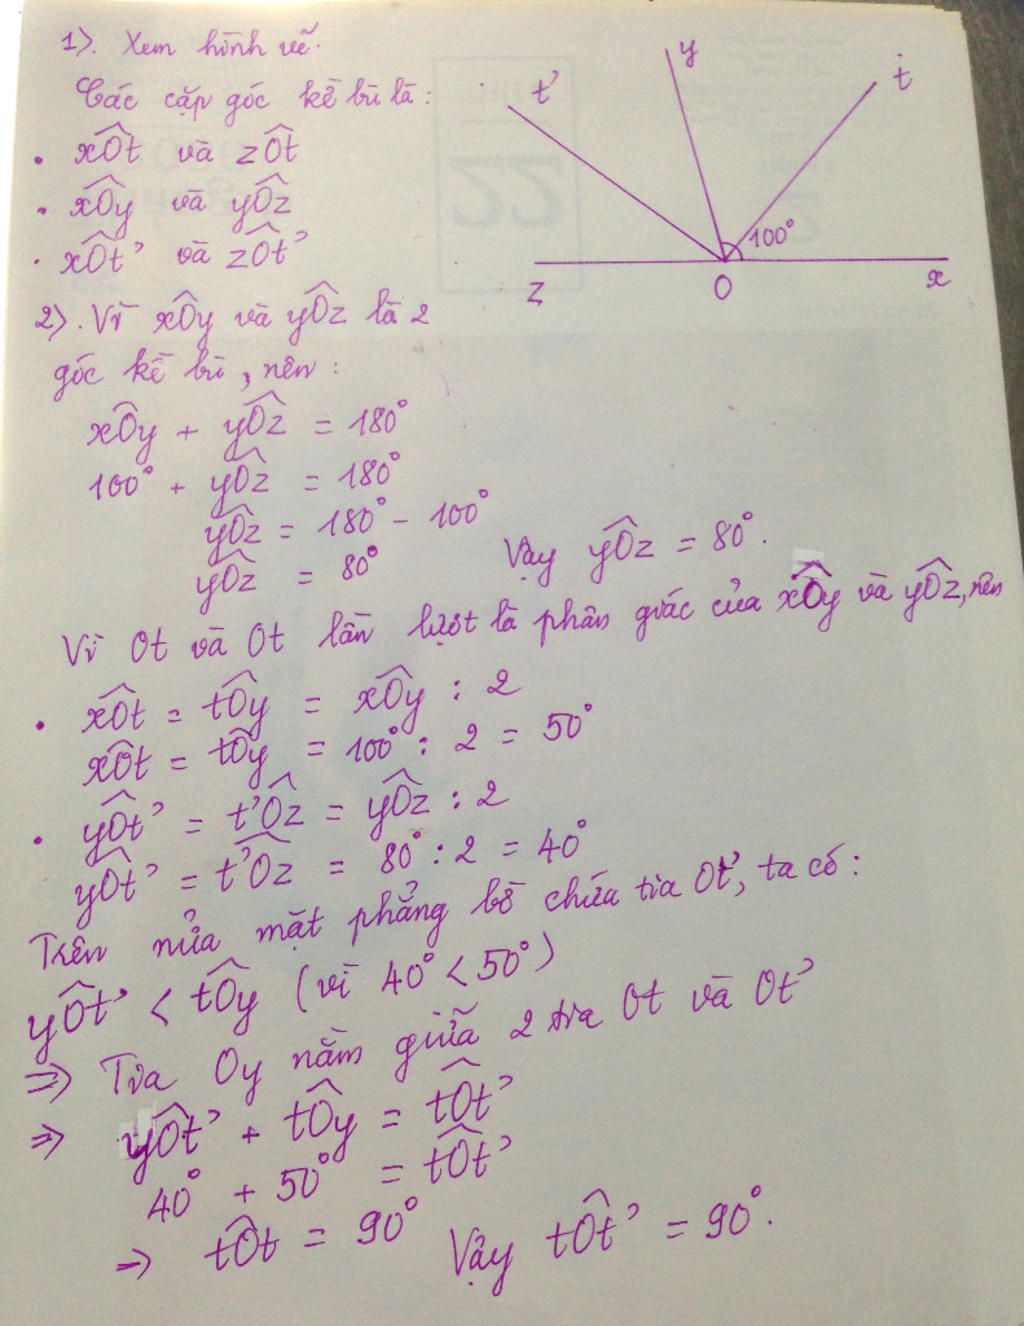 1). Xem hình vẽ.
Các cặp góc kề bù là:
• xÔt và zÔt
• xÔy và yÔz
• xÔt' và zÔt'
t'
y
t
100°
z
O
x
2). Vì xÔy và yÔz là 2
góc kề bù, nên:
xÔy + yÔz = 180°
100° + yÔz = 180°
yÔz = 180° - 100°
yÔz = 80°
Vậy yÔz = 80°.
Vì Ot và Ot lần lượt là phân giác của xÔy và yÔz, nên
• xÔt = tÔy = xÔy : 2
xÔt = tÔy = 100° : 2 = 50°
• yÔt' = t'Ôz = yÔz : 2
yÔt' = t'Ôz = 80° : 2 = 40°
Trên nửa mặt phẳng bờ chứa tia Ot', ta có:
yÔt' < tÔy (vì 40° < 50°)
=> Tia Oy nằm giữa 2 tia Ot và Ot'
=> yÔt' + tÔy = tÔt'
40° + 50° = tÔt'
=> tÔt = 90°
Vậy tÔt' = 90°.